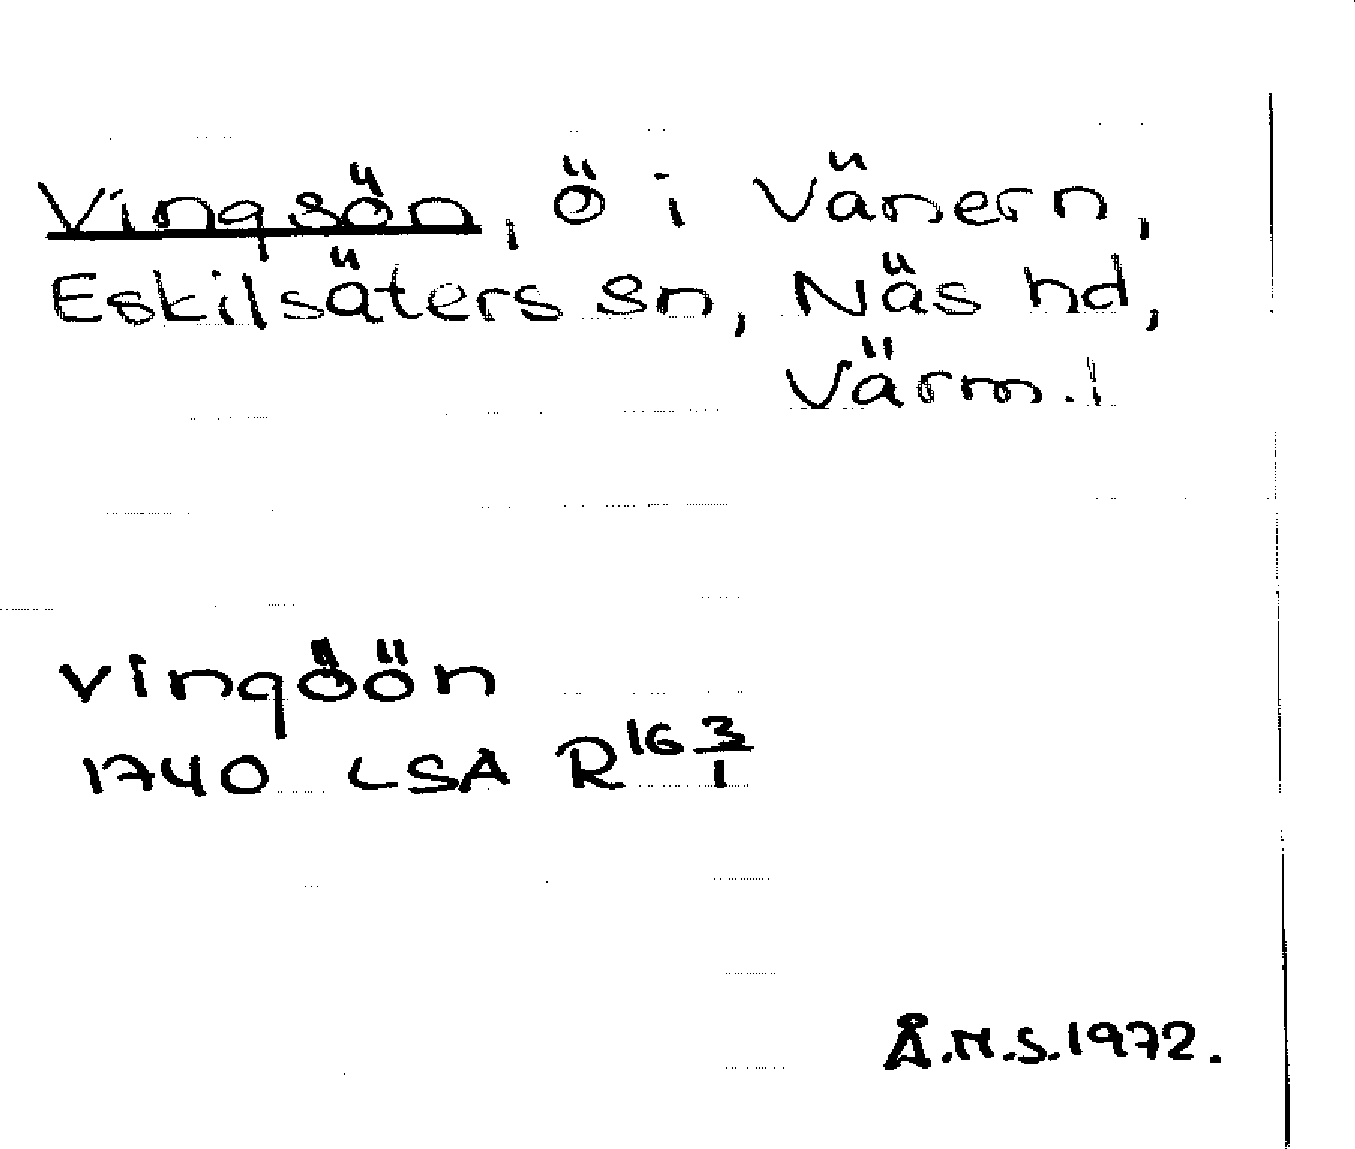 Vingsön, ö i Vänern,
Eskilsäters sn, Näs hd,
Värm.l
vingöön
1740 LSA R16 3/1
Å.H.S.1972.